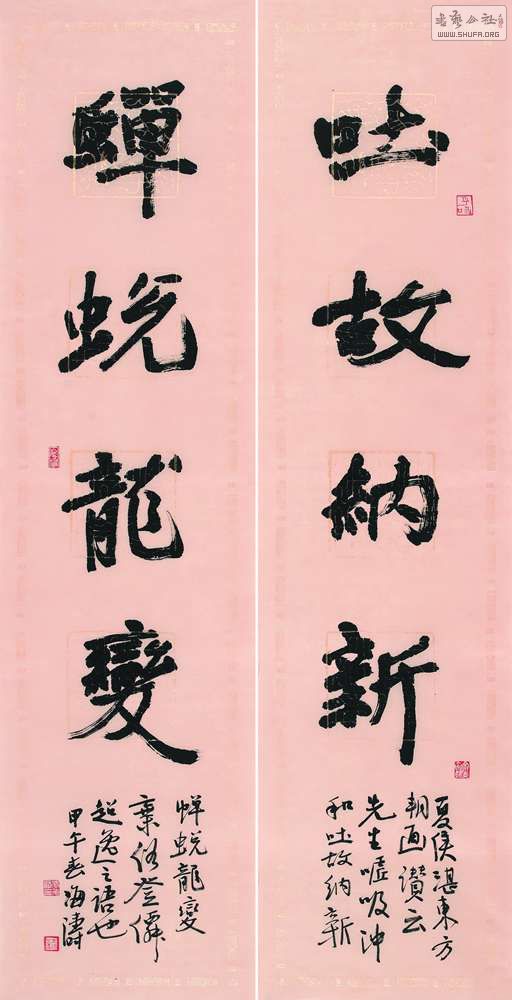 吐故納新
夏侯湛東方
朔画讚云
先生嘘吸冲
和吐故納新
蟬蛻龍變
蟬蛻龍變
棄俗登僊
超逸之語也
甲午春海濤
書藝公社
WWW.SHUFA.ORG